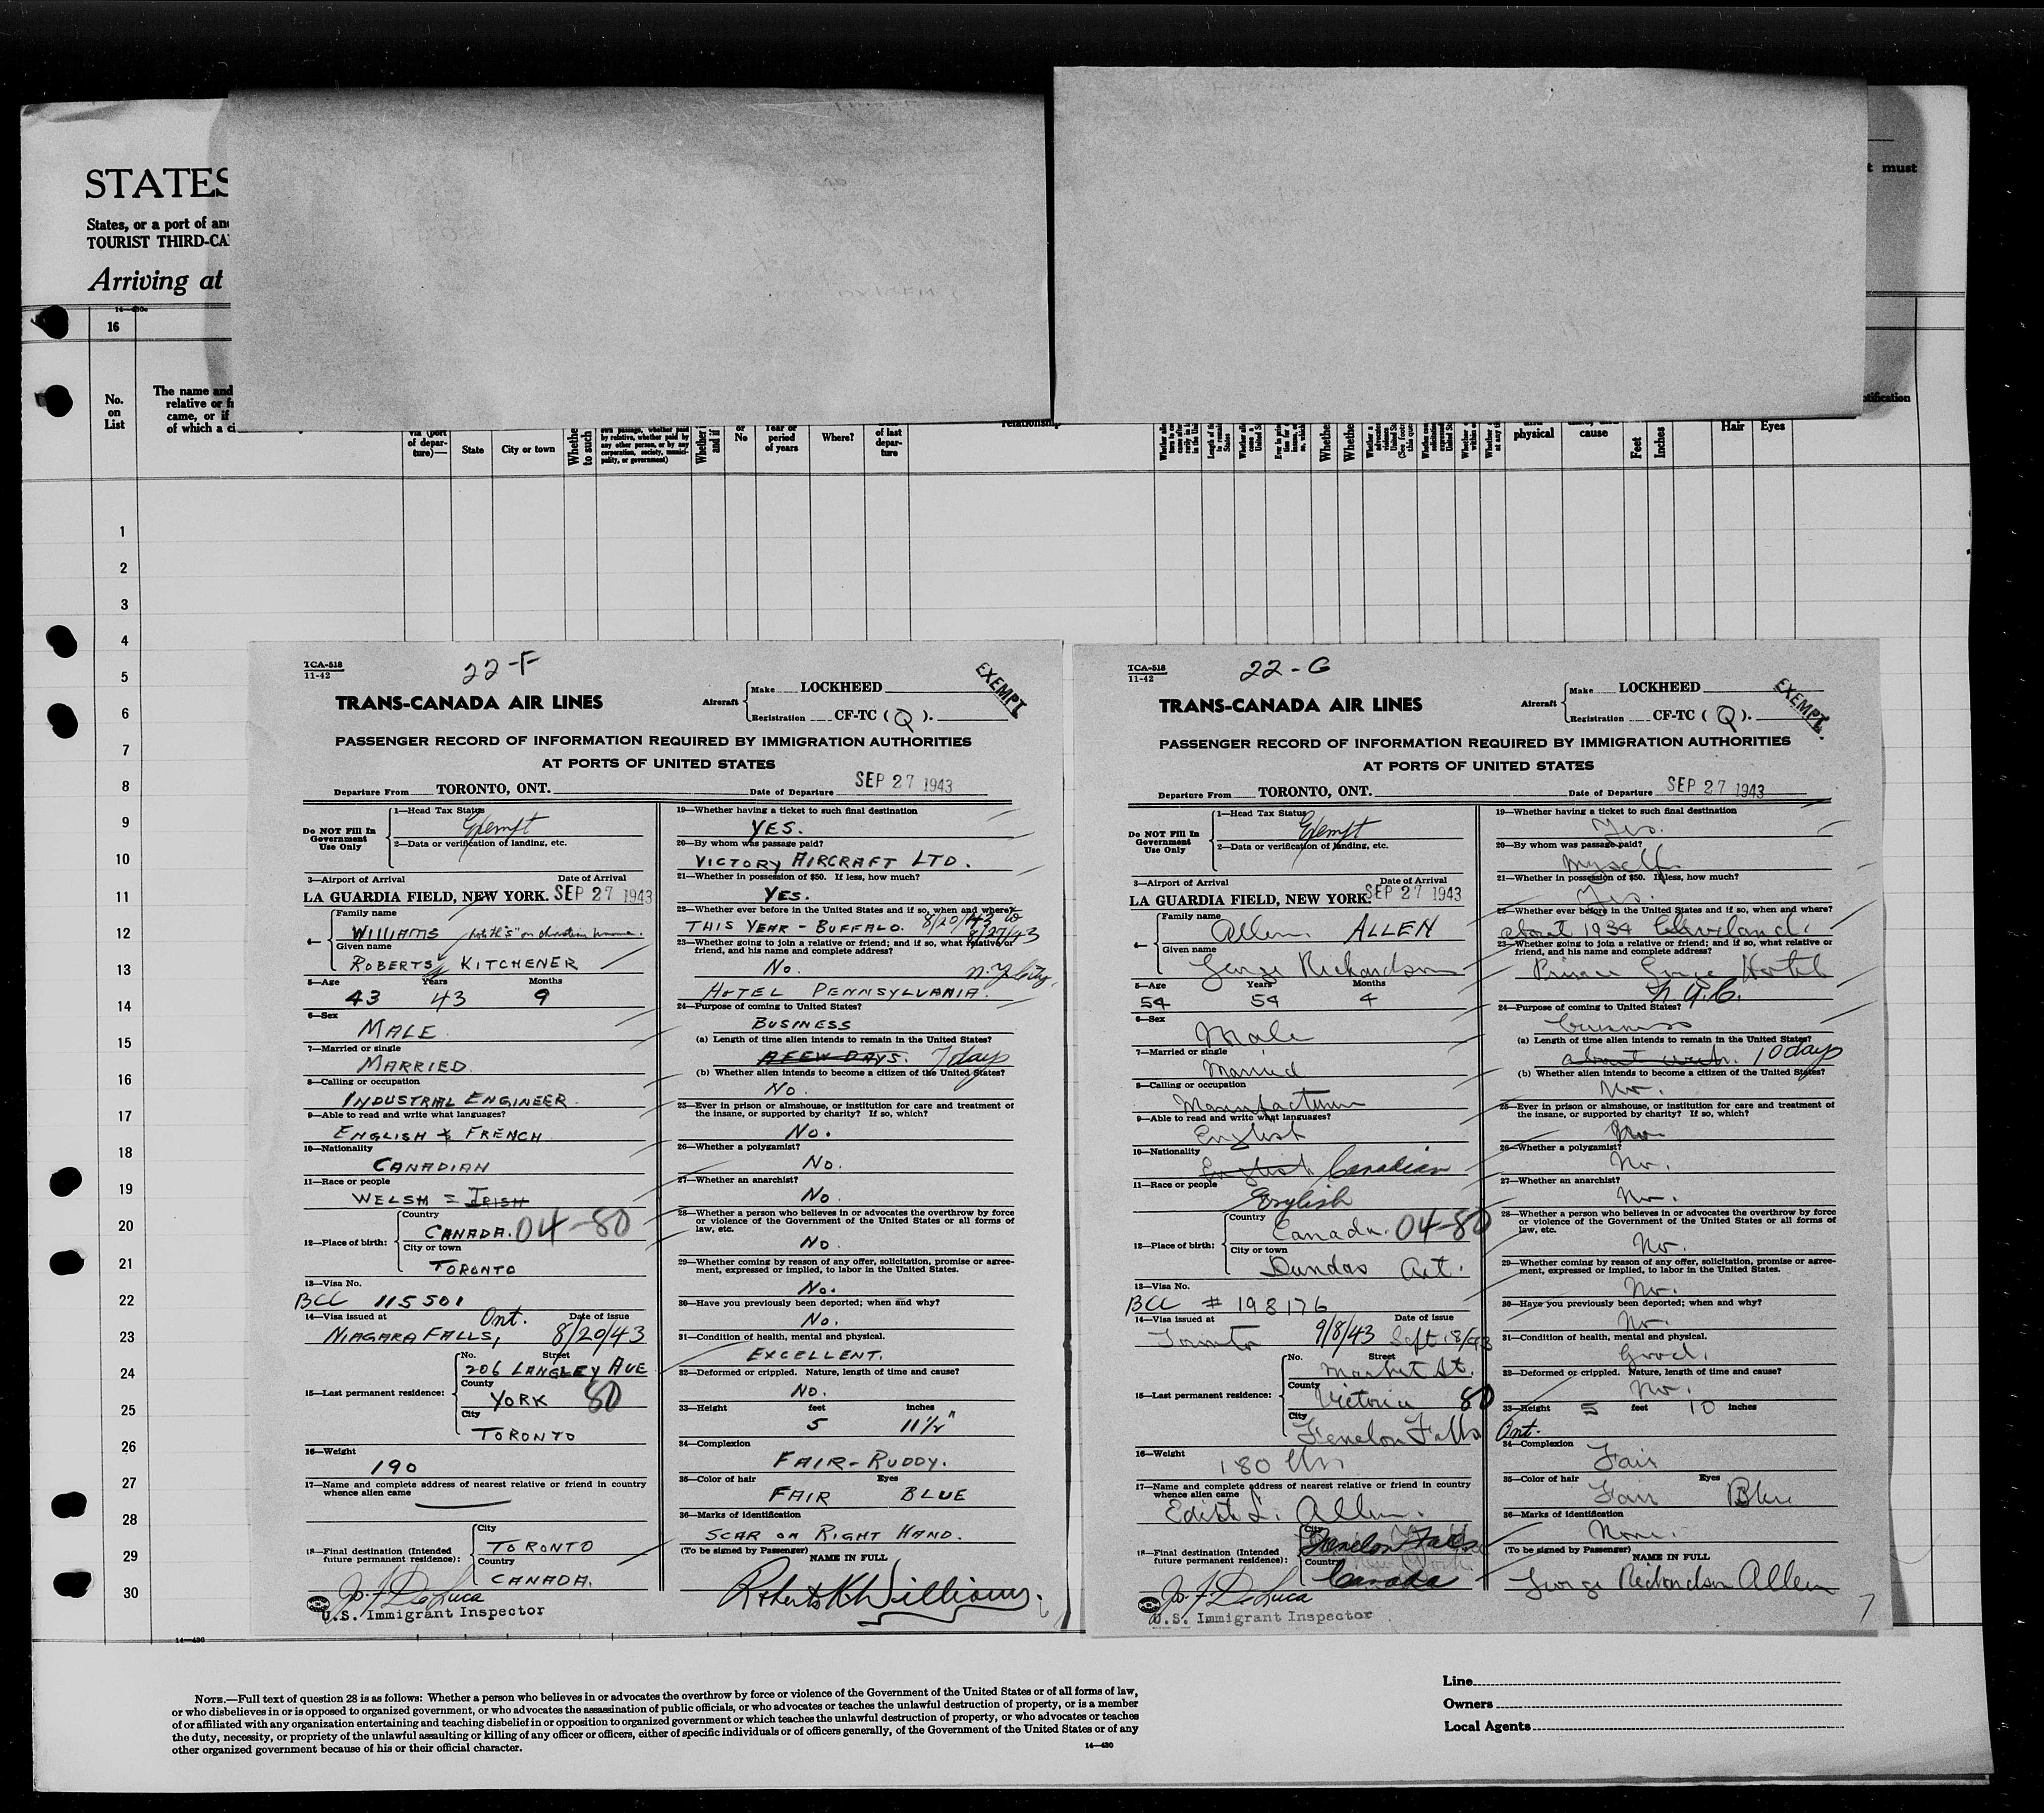 STATES
States, or a port of
TOURIST THIRD-CA
Arriving at
t must
14—430c
16
No.
on
List
The name and
relative or
came, or if
of which a
via (port
of depar-
ture)—
State
City or town
Whether
to such
own passage, whether paid
by relative, whether paid by
any other person, or by any
corporation, society, munici-
pality, or government)
or
No
Year or
period
of years
Where?
of last
depar-
ture
relationship
physical
cause
Feet
Inches
Hair
Eyes
1
2
3
4
5
6
7
8
9
10
11
12
13
14
15
16
17
18
19
20
21
22
23
24
25
26
27
28
29
30
TCA-518
11-42
22-F
EXEMPT
TRANS-CANADA AIR LINES
Aircraft
Make LOCKHEED
Registration CF-TC (Q).
PASSENGER RECORD OF INFORMATION REQUIRED BY IMMIGRATION AUTHORITIES
AT PORTS OF UNITED STATES
Departure From TORONTO, ONT. Date of Departure SEP 27 1943
Do NOT Fill In
Government
Use Only
1—Head Tax Status
Exempt
2—Data or verification of landing, etc.
3—Airport of Arrival Date of Arrival
LA GUARDIA FIELD, NEW YORK. SEP 27 1943
4—
Family name
WILLIAMS
Given name
ROBERTS KITCHENER
5—Age Years Months
43 43 9
6—Sex
MALE
7—Married or single
MARRIED.
8—Calling or occupation
INDUSTRIAL ENGINEER.
9—Able to read and write what languages?
ENGLISH & FRENCH
10—Nationality
CANADIAN
11—Race or people
WELSH = IRISH
12—Place of birth:
Country
CANADA. 04-80
City or town
TORONTO
13—Visa No.
BCC 115501
14—Visa issued at Ont. Date of issue
NIAGARA FALLS, 8/20/43
15—Last permanent residence:
No. Street
206 LANGLEY AVE
County
YORK 80
City
TORONTO
16—Weight
190
17—Name and complete address of nearest relative or friend in country
whence alien came
18—Final destination (Intended
future permanent residence):
City
TORONTO
Country
CANADA.
Jos. F. De Luca
U.S. Immigrant Inspector
19—Whether having a ticket to such final destination
YES.
20—By whom was passage paid?
VICTORY AIRCRAFT LTD.
21—Whether in possession of $50. If less, how much?
YES.
22—Whether ever before in the United States and if so, when and where?
THIS YEAR - BUFFALO. 8/20/43 to
8/27/43
23—Whether going to join a relative or friend; and if so, what relative or
friend, and his name and complete address?
No. N.Y. City.
HOTEL PENNSYLVANIA.
24—Purpose of coming to United States?
BUSINESS
(a) Length of time alien intends to remain in the United States?
A FEW DAYS. 7 days
(b) Whether alien intends to become a citizen of the United States?
No.
25—Ever in prison or almshouse, or institution for care and treatment of
the insane, or supported by charity? If so, which?
No.
26—Whether a polygamist?
No.
27—Whether an anarchist?
No.
28—Whether a person who believes in or advocates the overthrow by force
or violence of the Government of the United States or all forms of
law, etc.
No.
29—Whether coming by reason of any offer, solicitation, promise or agree-
ment, expressed or implied, to labor in the United States.
No.
30—Have you previously been deported; when and why?
No.
31—Condition of health, mental and physical.
EXCELLENT.
32—Deformed or crippled. Nature, length of time and cause?
No.
33—Height feet inches
5 11½"
34—Complexion
FAIR-RUDDY.
35—Color of hair Eyes
FAIR BLUE
36—Marks of identification
SCAR ON RIGHT HAND.
(To be signed by Passenger)
NAME IN FULL
Roberts K Williams.
6
TCA-518
11-42
22-G
EXEMPT.
TRANS-CANADA AIR LINES
Aircraft
Make LOCKHEED
Registration CF-TC (Q).
PASSENGER RECORD OF INFORMATION REQUIRED BY IMMIGRATION AUTHORITIES
AT PORTS OF UNITED STATES
Departure From TORONTO, ONT. Date of Departure SEP 27 1943
Do NOT Fill In
Government
Use Only
1—Head Tax Status
Exempt
2—Data or verification of landing, etc.
3—Airport of Arrival Date of Arrival
LA GUARDIA FIELD, NEW YORK. SEP 27 1943
4—
Family name
Allen. ALLEN
Given name
George Richardson
5—Age Years Months
54 54 4
6—Sex
Male
7—Married or single
Married
8—Calling or occupation
Manufacturer
9—Able to read and write what languages?
English
10—Nationality
English Canadian
11—Race or people
English
12—Place of birth:
Country
Canada. 04-80
City or town
Dundas Ont.
13—Visa No.
BCC # 198176
14—Visa issued at Date of issue
Toronto 9/8/43 Sept 18/43
15—Last permanent residence:
No. Street
Market St.
County
Victoria 80
City
Fenelon Falls Ont.
16—Weight
180 lbs
17—Name and complete address of nearest relative or friend in country
whence alien came
Edith L. Allen.
18—Final destination (Intended
future permanent residence):
City
Fenelon Falls
Country
Canada
Jos. F. De Luca
U.S. Immigrant Inspector
19—Whether having a ticket to such final destination
Yes.
20—By whom was passage paid?
Myself
21—Whether in possession of $50. If less, how much?
Yes.
22—Whether ever before in the United States and if so, when and where?
about 1934 Cleveland.
23—Whether going to join a relative or friend; and if so, what relative or
friend, and his name and complete address?
Prince George Hotel
N.Y.C.
24—Purpose of coming to United States?
business
(a) Length of time alien intends to remain in the United States?
about week. 10 days
(b) Whether alien intends to become a citizen of the United States?
No.
25—Ever in prison or almshouse, or institution for care and treatment of
the insane, or supported by charity? If so, which?
No.
26—Whether a polygamist?
No.
27—Whether an anarchist?
No.
28—Whether a person who believes in or advocates the overthrow by force
or violence of the Government of the United States or all forms of
law, etc.
No.
29—Whether coming by reason of any offer, solicitation, promise or agree-
ment, expressed or implied, to labor in the United States.
No.
30—Have you previously been deported; when and why?
No.
31—Condition of health, mental and physical.
Good.
32—Deformed or crippled. Nature, length of time and cause?
No.
33—Height 5 feet 10 inches
34—Complexion
Fair
35—Color of hair Eyes
Fair Blue
36—Marks of identification
None.
(To be signed by Passenger)
NAME IN FULL
George Richardson Allen
7
14—430
NOTE.—Full text of question 28 is as follows: Whether a person who believes in or advocates the overthrow by force or violence of the Government of the United States or of all forms of law,
or who disbelieves in or is opposed to organized government, or who advocates the assassination of public officials, or who advocates or teaches the unlawful destruction of property, or is a member
of or affiliated with any organization entertaining and teaching disbelief in or opposition to organized government or which teaches the unlawful destruction of property, or who advocates or teaches
the duty, necessity, or propriety of the unlawful assaulting or killing of any officer or officers, either of specific individuals or of officers generally, of the Government of the United States or of any
other organized government because of his or their official character.
14—430
Line
Owners
Local Agents